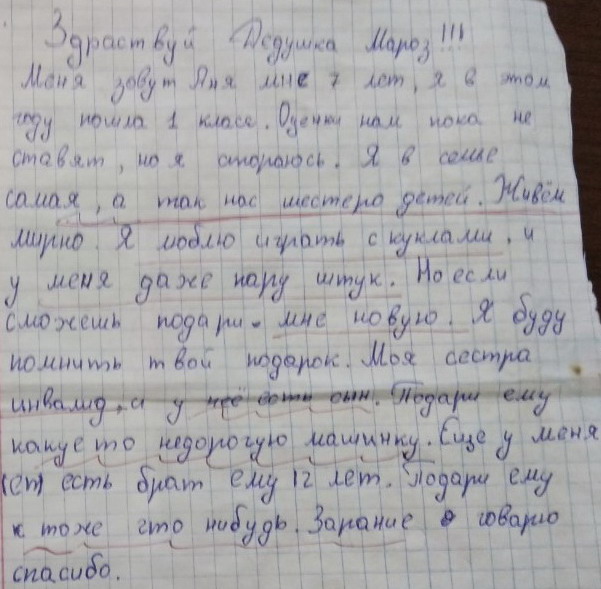 Здраствуй Дедушка Мароз!!!
Меня зовут Аня мне 7 лет, я в этом
году пошла 1 класс. Оценки нам пока не
ставят, но я стораюсь. Я в семье
самая, а так нас шестеро детей. Живём
мирно. Я люблю играть с куклами, и
у меня даже пару штук. Но если
сможешь подари мне новую. Я буду
помнить твой подарок. Моя сестра
инвалид, и у неё есть сын. Подари ему
какуе то недорогую машинку. Еще у меня
есть брат ему 12 лет. Подари ему
к тоже что нибудь. Зарание говарю
спасибо.